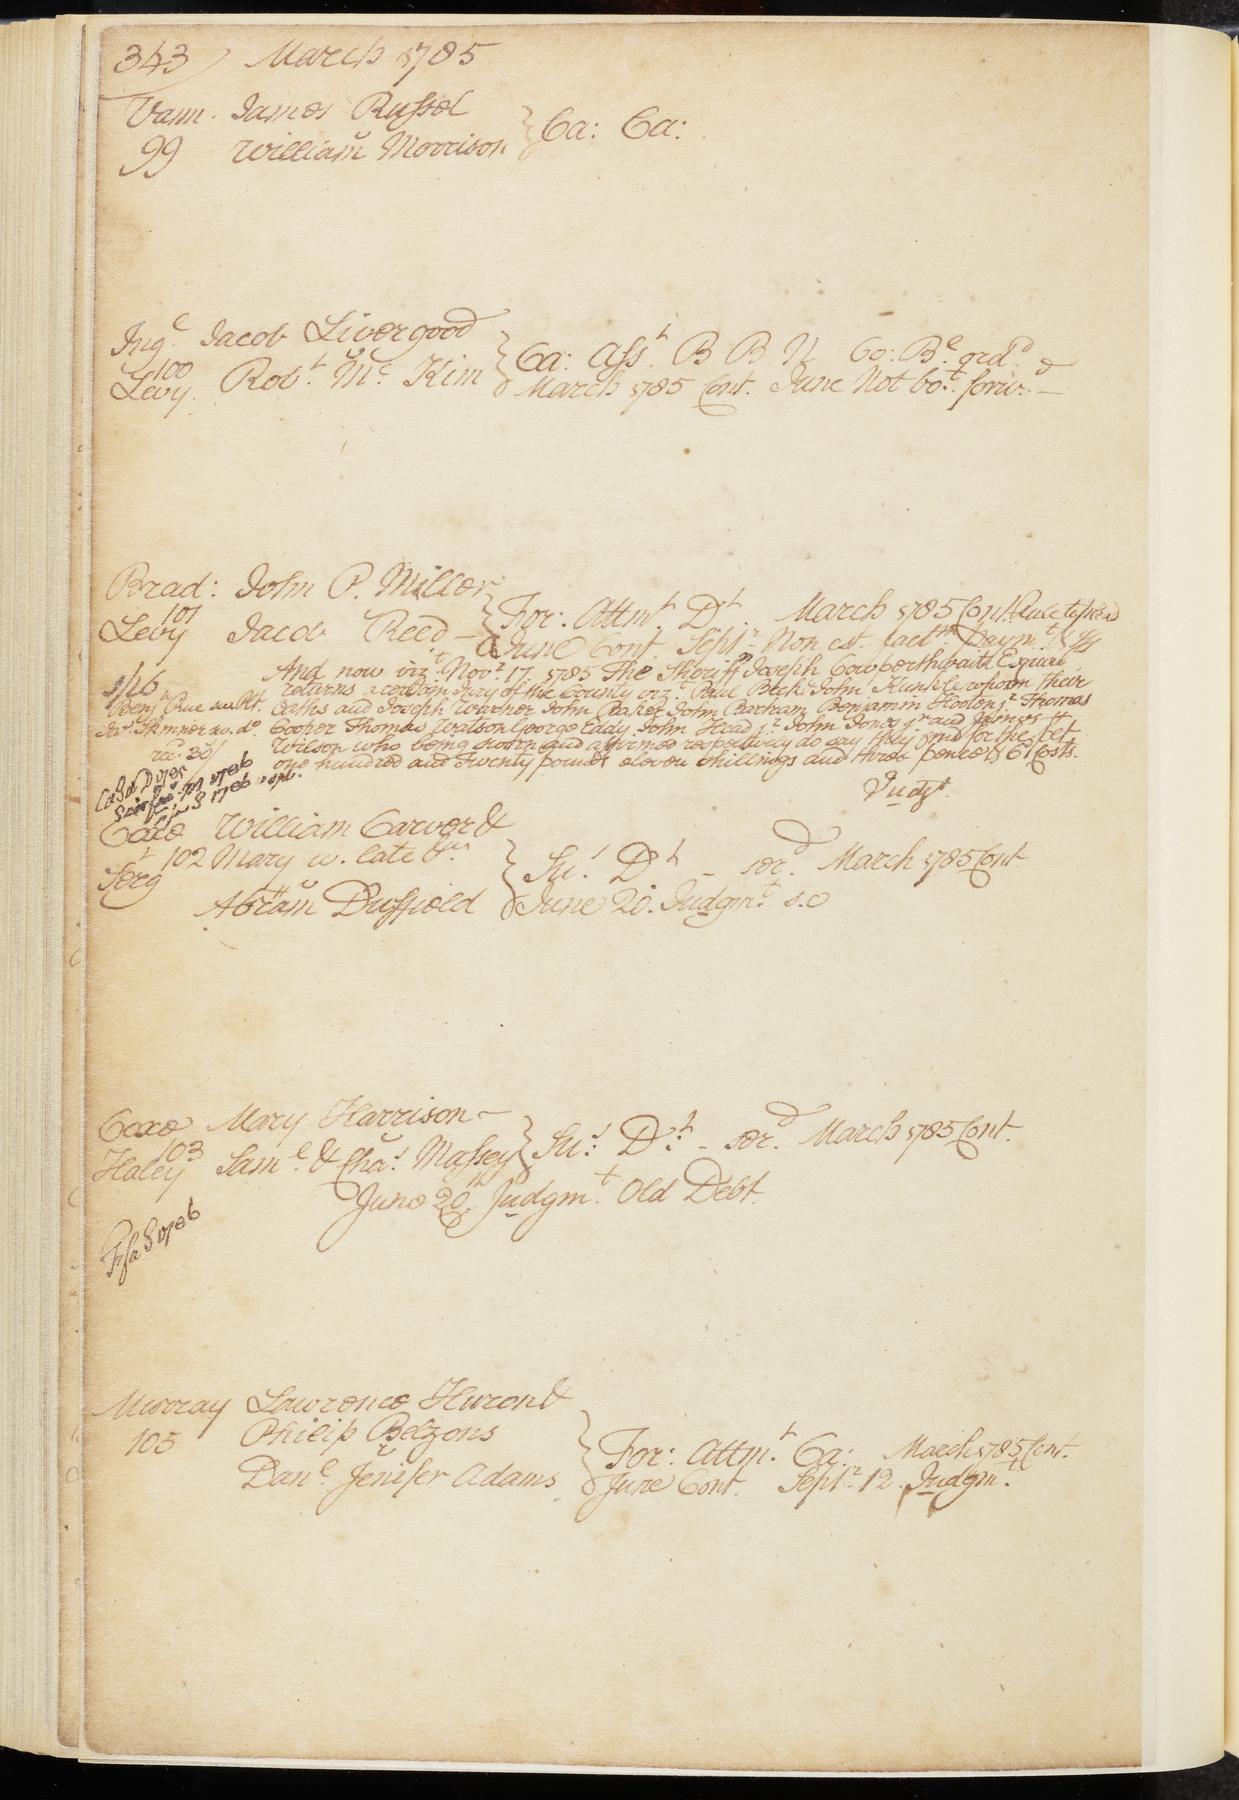 343) March 1785
Vann. James Russel
99 William Morrison } Ca: Ca:
Ing.e Jacob Livergood
100
Levy. Rob.t Mc Kim } Ca: Ass.t B B N Co: B.e grd.d &
March 1785 Cont. June Not bo.t forw. —
Brad: John P. Miller
101
Levy Jacob Reed — } For: Attm.t D.t March 1785 Cont. Rule to plead
June Cont. Sept.r Non est fact.m Paym.t & Iss
And now viz.t Nov.r 17 1785 The Sheriff Joseph Cowperthwait Esquire
returns a certain Jury of the County viz.t Paul Beck John Kunkle upon their
Oaths and Joseph Warner John Baker John Bartram Benjamin Hooton j.r Thomas
Cooper Thomas Watson George Eddy John Head j.r John Jones j.r and James
Wilson who being sworn and affirmed respectively do say they find for the plt
one hundred and Twenty pounds eleven shillings and three pence & 6d Costs.
Judgt
Benj.n Rue
Skinner do. d.o
Coxe William Carver &
102 Mary w. late
Serg.t
Abra.m Duffield } Su.s D.t - ser.d March 1785 Cont
June 20. Judgm.t s.c
Coxe Mary Harrison —
103
Haley Sam.l & Cha.s Massey } Su.s D.t - ser.d March 1785 Cont.
June 20.th Judgm.t Old Debt.
Fi fa S 1786
Murray Lawrence Huron &
105 Philip Belzons
Dan.l Jenifer Adams } For: Attm.t Ca: March 1785 Cont.
June Cont. Sept.r 12. Judgm.t